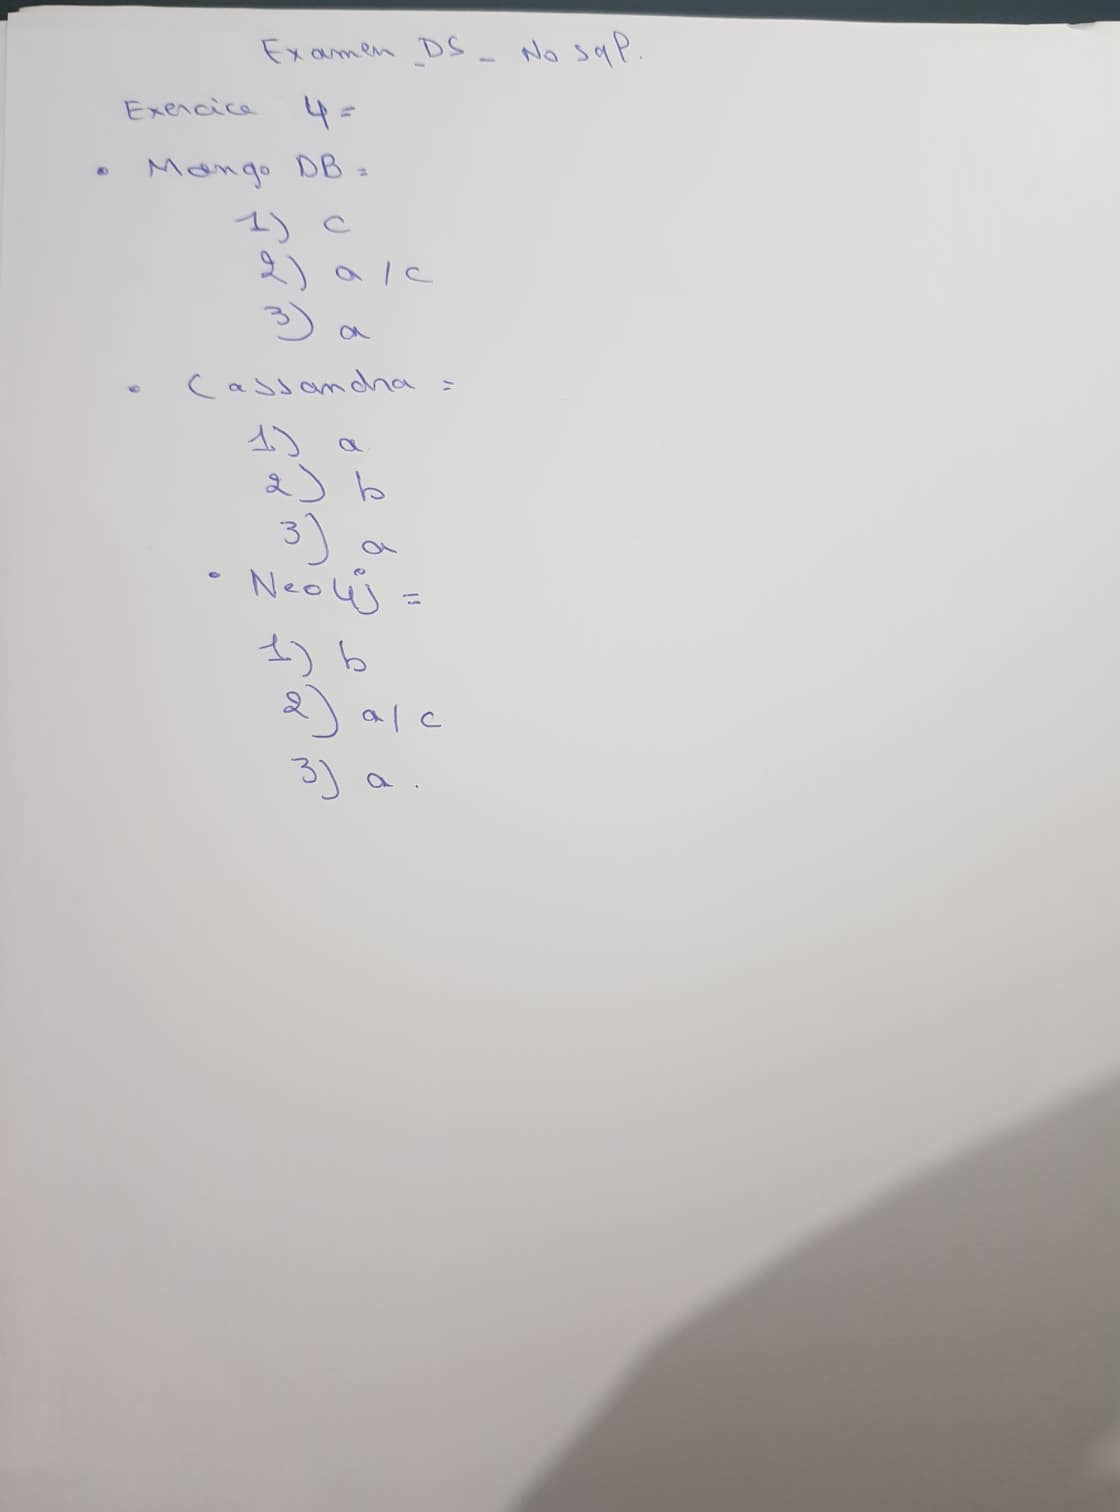 Examen _DS_ No sql.
Exercice 4 =
• Mango DB =
1) c
2) a / c
3) a
• Cassandra =
1) a
2) b
3) a
• Neo4j =
1) b
2) a / c
3) a .